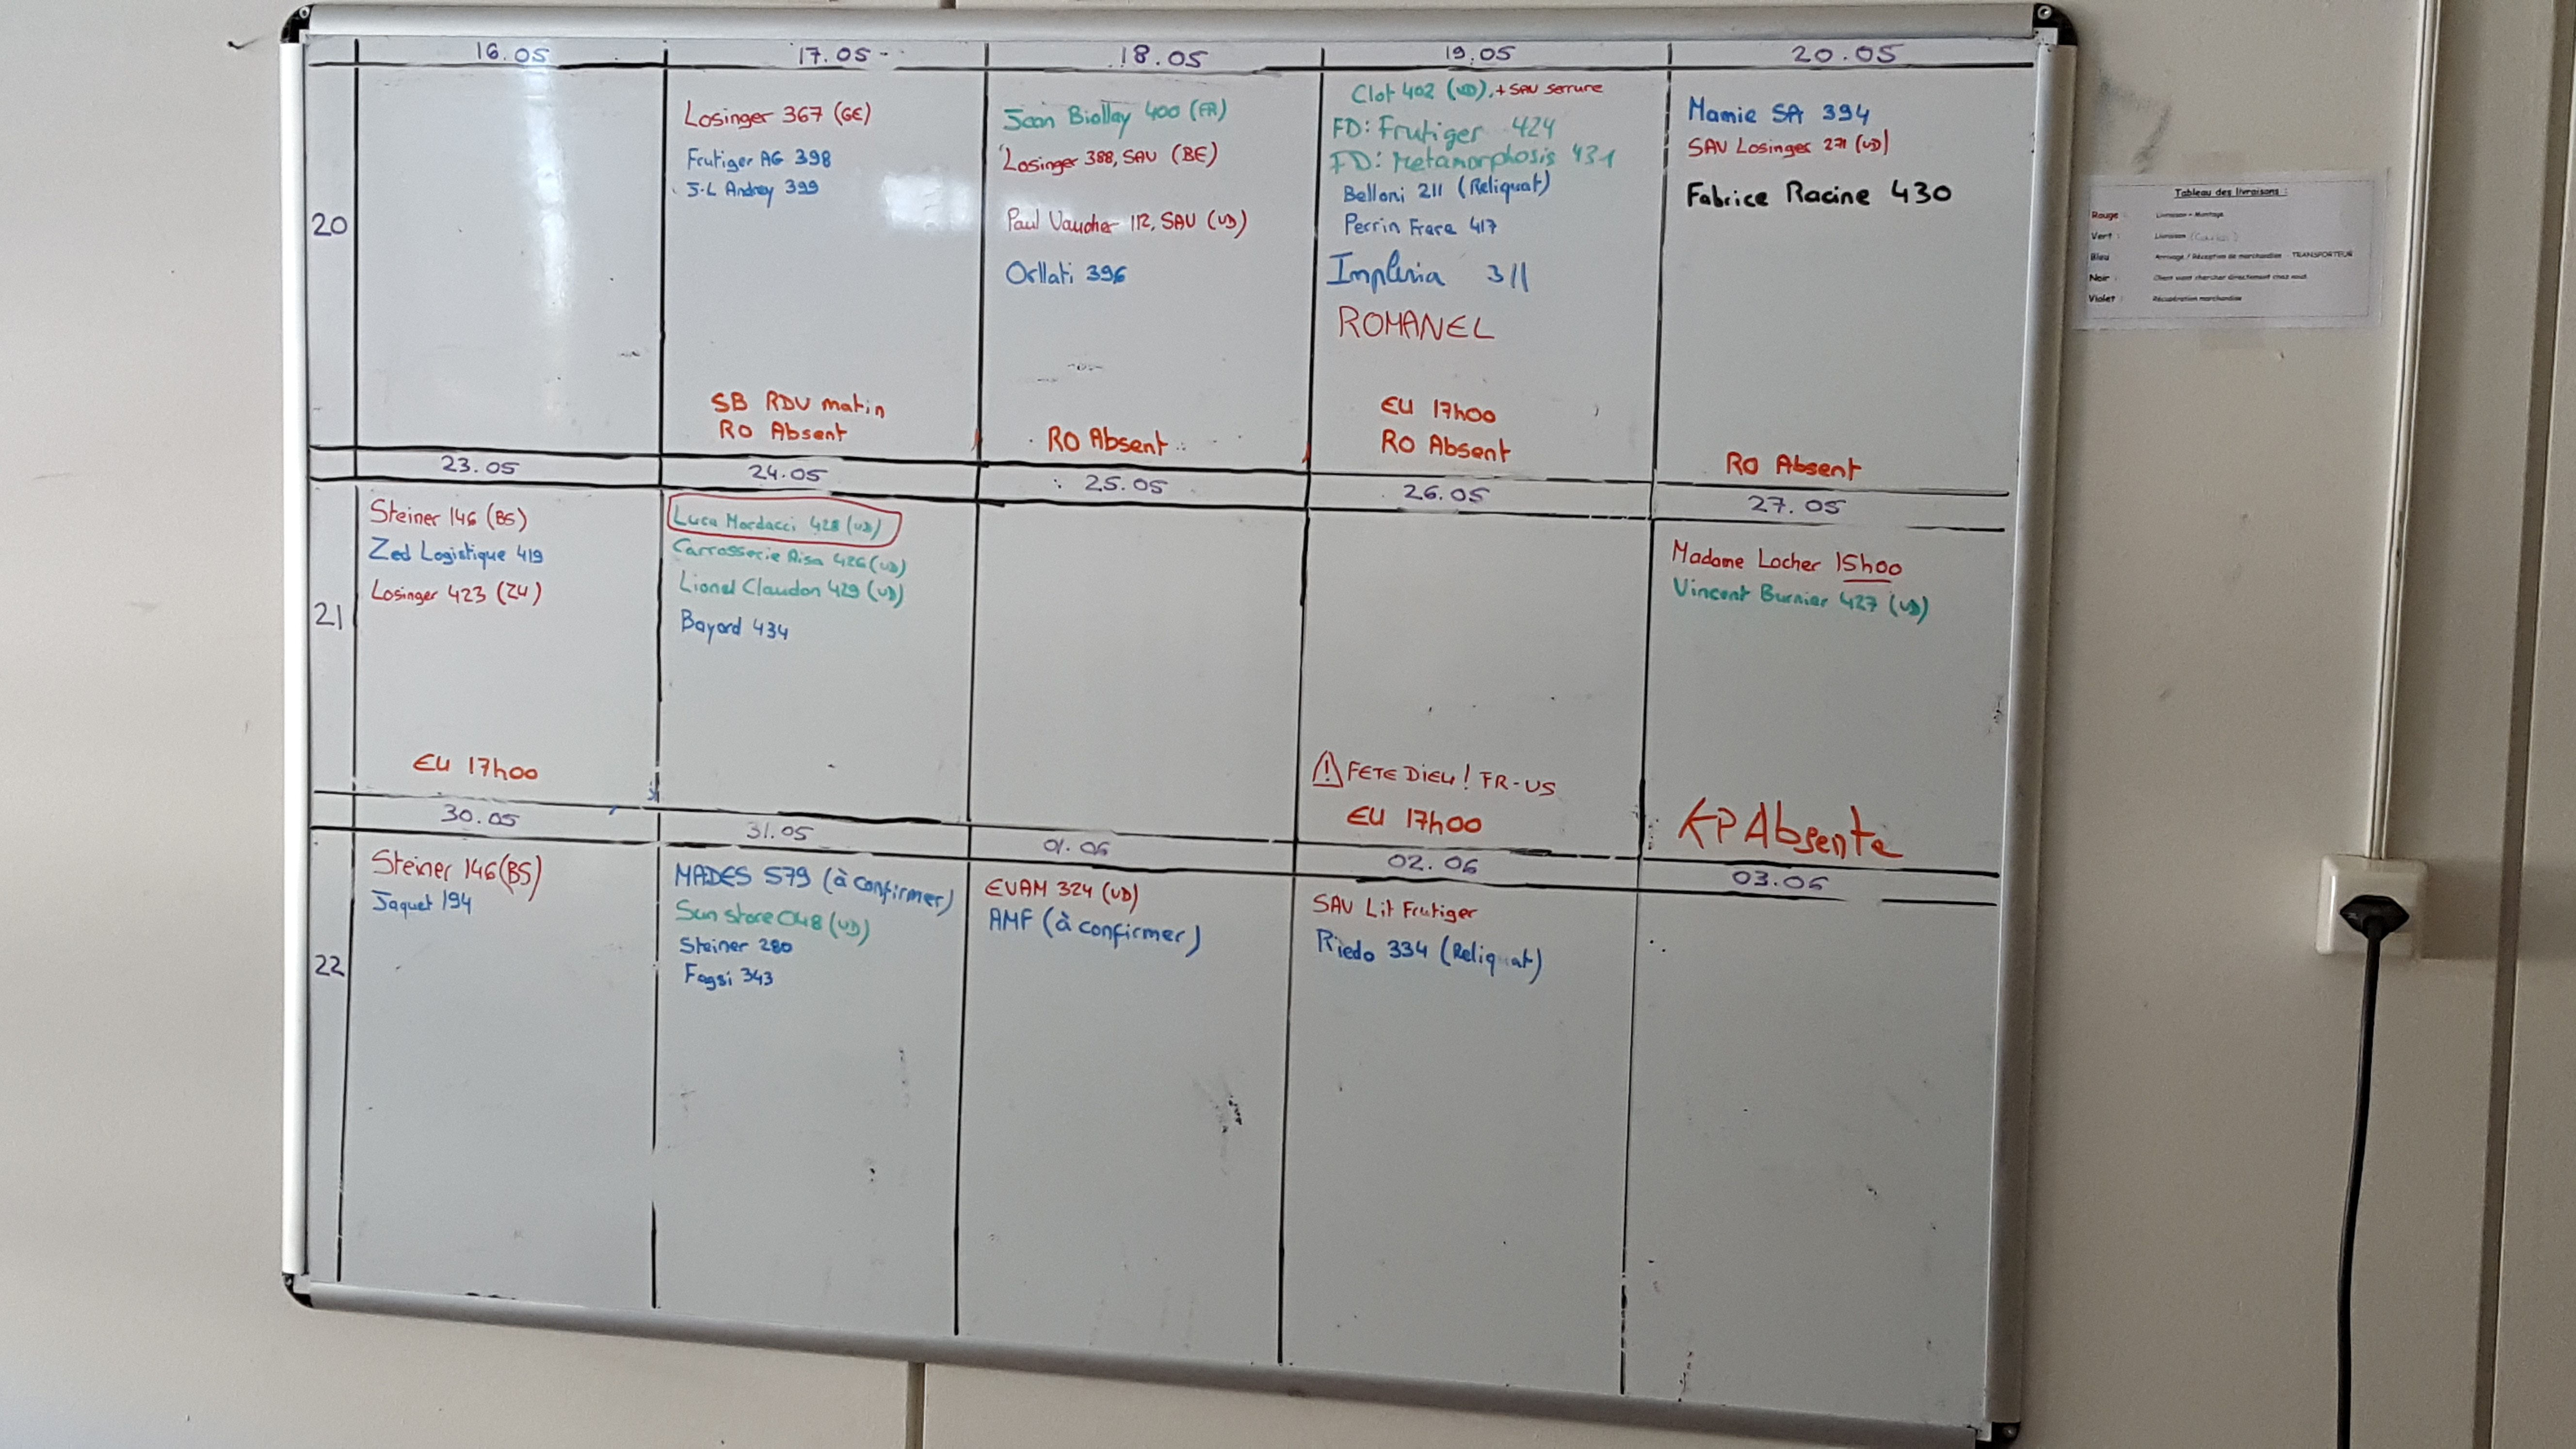 16.05 17.05 18.05 19.05 20.05
20
Losinger 367 (GE)
Frutiger AG 398
J-L Andrey 399
SB RDV matin
RO Absent
Jean Biollay 400 (FR)
Losinger 388, SAV (BE)
Paul Vaucher 112, SAV (VD)
Orllati 396
RO Absent
Clot 402 (VD), + SAV serrure
FD: Frutiger 424
FD: Metamorphosis 431
Belloni 211 (Reliquat)
Perrin Frere 417
Implenia 311
ROMANEL
EU 17h00
RO Absent
Mamie SA 394
SAV Losinger 271 (VD)
Fabrice Racine 430
RO Absent
23.05 24.05 25.05 26.05 27.05
21
Steiner 146 (BS)
Zed Logistique 419
Losinger 423 (ZU)
EU 17h00
Luca Mordacci 428 (VD)
Carrosserie Aisa 426 (VD)
Lionel Claudon 429 (VD)
Bayard 434
FETE DIEU! FR-US
EU 17h00
Madame Locher 15h00
Vincent Burnier 427 (VD)
KP Absente
30.05 31.05 01.06 02.06 03.06
22
Steiner 146 (BS)
Jaquet 194
MADES 579 (à confirmer)
Sun store 048 (VD)
Steiner 280
Fagsi 343
EVAM 324 (VD)
AMF (à confirmer)
SAV Lit Frutiger
Riedo 334 (Reliquat)
Tableau des livraisons :
Rouge : Livraison + Montage
Vert : Livraison
Bleu Arrivage / Réception de marchandise - TRANSPORTEUR
Noir : Client vient chercher directement chez nous
Violet : Récupération marchandise